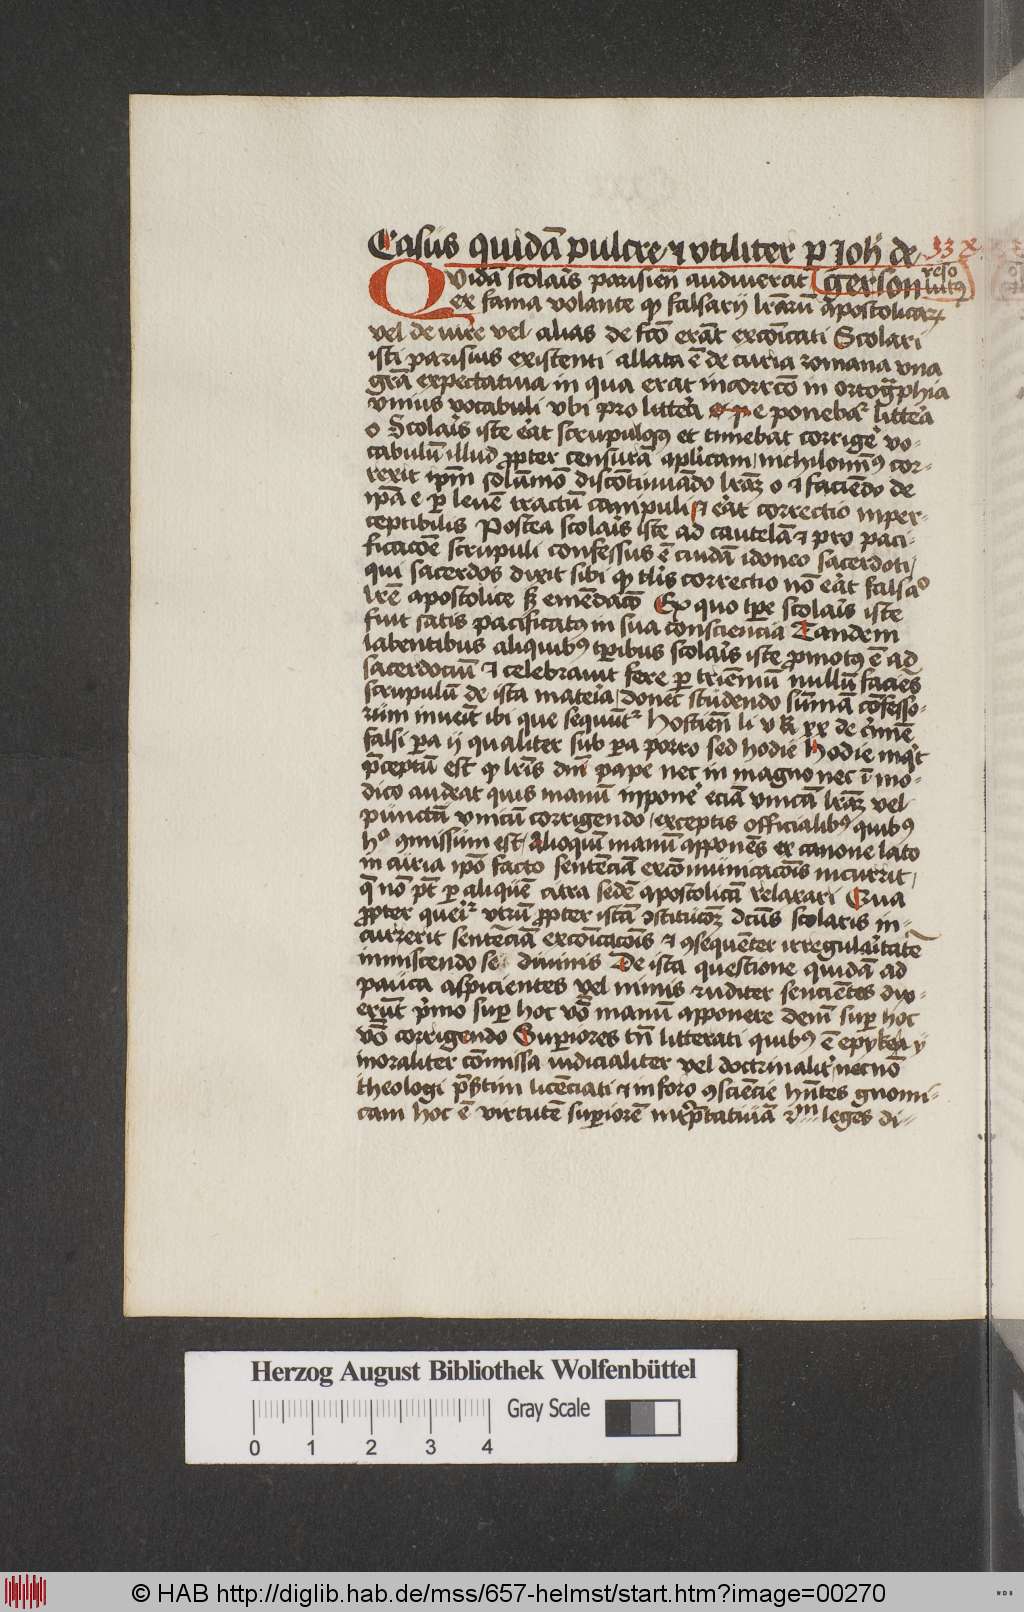 Casus quidā pulcre et vtiliter p Joh de 33 x
Quidā scolaris parisieñ audiuerat gerson resolutus
ex fama volante qꝫ falsarij lrārū apostolicarꝝ
vel de iure vel alias de fcō erāt excōicati Scolari
isti parisius existenti allata ē de curia romana vna
grā expectatiua in qua erat incorrcō in ortogrphia
vnius vocabuli vbi pro littera e ponebar littera
o Scolaris iste erat scrupulosus et timebat corrige vo-
cabulū illud propter censurā aplicam nichilomin9 cor-
rexit ipm solūmō discōtinuādo lrāꝫ o et faciēdo de
ipā e per leuē tractū campuli et erat correctio inper-
ceptibilis Postea scolaris iste ad cautelā et pro paci-
ficacōe scrupuli confessus ē cuidā idoneo sacerdoti
qui sacerdos dixit sibi qꝫ tlis correctio nō erat falsaō
lrē apostolice sꝫ emēdacō Ex quo tpre scolaris iste
fuit satis pacificatus in sua consciencia Tandem
labentibus aliquib9 tpribus scolaris iste pmot9 ē ad
sacerdociū et celebrauit fere per trieñiū nullū facies
scrupulū de ista materia donec studendo sūmā confesso-
rum inuenit ibi que sequūtr Hostieñ li v k xx de crimē
falsi pa ij qualiter sub pa porro sed hodie Hodie inqt
pceptū est qꝫ lris dni pape nec in magno nec ī mo-
dico audeat quis manū inpone eciā vnicā lrāꝫ vel
punctū vnicū corrigendo exceptis officialib9 quib9
ho 9missum est Alioquī manū apponēs ex canone lato
in curia ipo facto sentēciā excōmunicacōis incurrit
qe nō pt per aliquē citra sedē apostolicā relaxari Qua
propter querir vtrū propter istā 9stitucōꝫ dcūs scolaris in-
currerit sentēciā excōicacōis et 9sequēter irregularitatē
inmiscendo se diuinis De ista questione quidā ad
pauca aspicientes vel nimis ruditer sencientes dix-
erūt primo super hoc vbō manū apponere deniū super hoc
vbō corrigendo Superiores tn litterati quib9 ē epykeia ij
moraliter cōmissa iudicialiter vel doctrinaliter necnō
theologi prstim licēciati et in foro 9sciēcie hntes gnomi-
cam hoc ē virtutē superiorē inrptatiuā rm leges di-
Herzog August Bibliothek Wolfenbüttel
Gray Scale
0 1 2 3 4
© HAB http://diglib.hab.de/mss/657-helmst/start.htm?image=00270